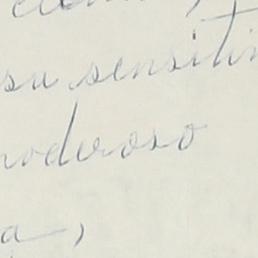 su sensitiv
poderoso
a,